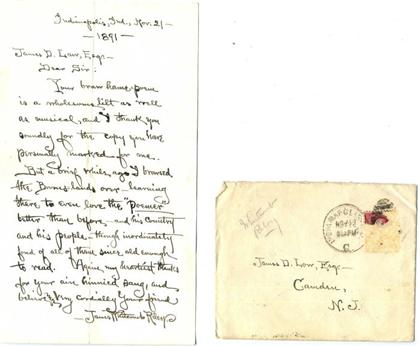 Indianapolis, Ind., Nov. 21 —
— 1891 —
James D. Law, Esq. —
Dear Sir:
Your braw hame-poem
is a wholesome lilt as well
as musical, and I thank you
soundly for the copy you have
personally marked for me. —
But a brief while ago I browsed
the Burns lands over — learning
there to even love the poems
better than before — and his Country
and his people — though inordinately
fond of all of them since old enough
to read. Again my heartiest thanks
for your ain hinnied sang, and
believe me Very cordially Your friend
— James Whitcomb Riley
Whitcomb
Riley
James D. Law, Esq. —
Camden,
N. J.